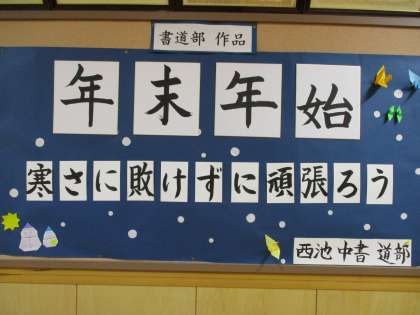 書道部 作品
年末年始
寒さに敗けずに頑張ろう
西池中書道部